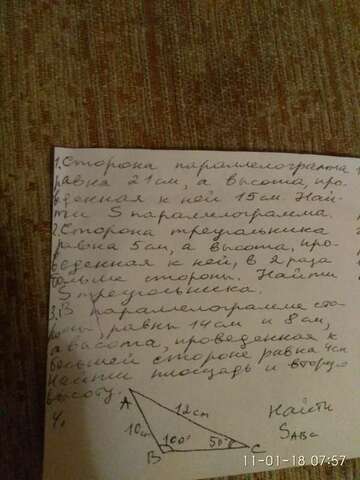 1. Сторона параллелограмма
равна 21 см, а высота, про-
веденная к ней 15 см. Най-
ти S параллелограмма.
2. Сторона треугольника
равна 5 см, а высота, про-
веденная к ней, в 2 раза
больше стороны. Найти
S треугольника.
3. В параллелограмме сто-
роны равны 14 см и 8 см,
а высота, проведенная к
большей стороне равна 4 см
Найти площадь и вторую
высоту
4.
A
12 cm
10 cm
100°
50°
B
C
Найти
S ABC
11-01-18 07:57